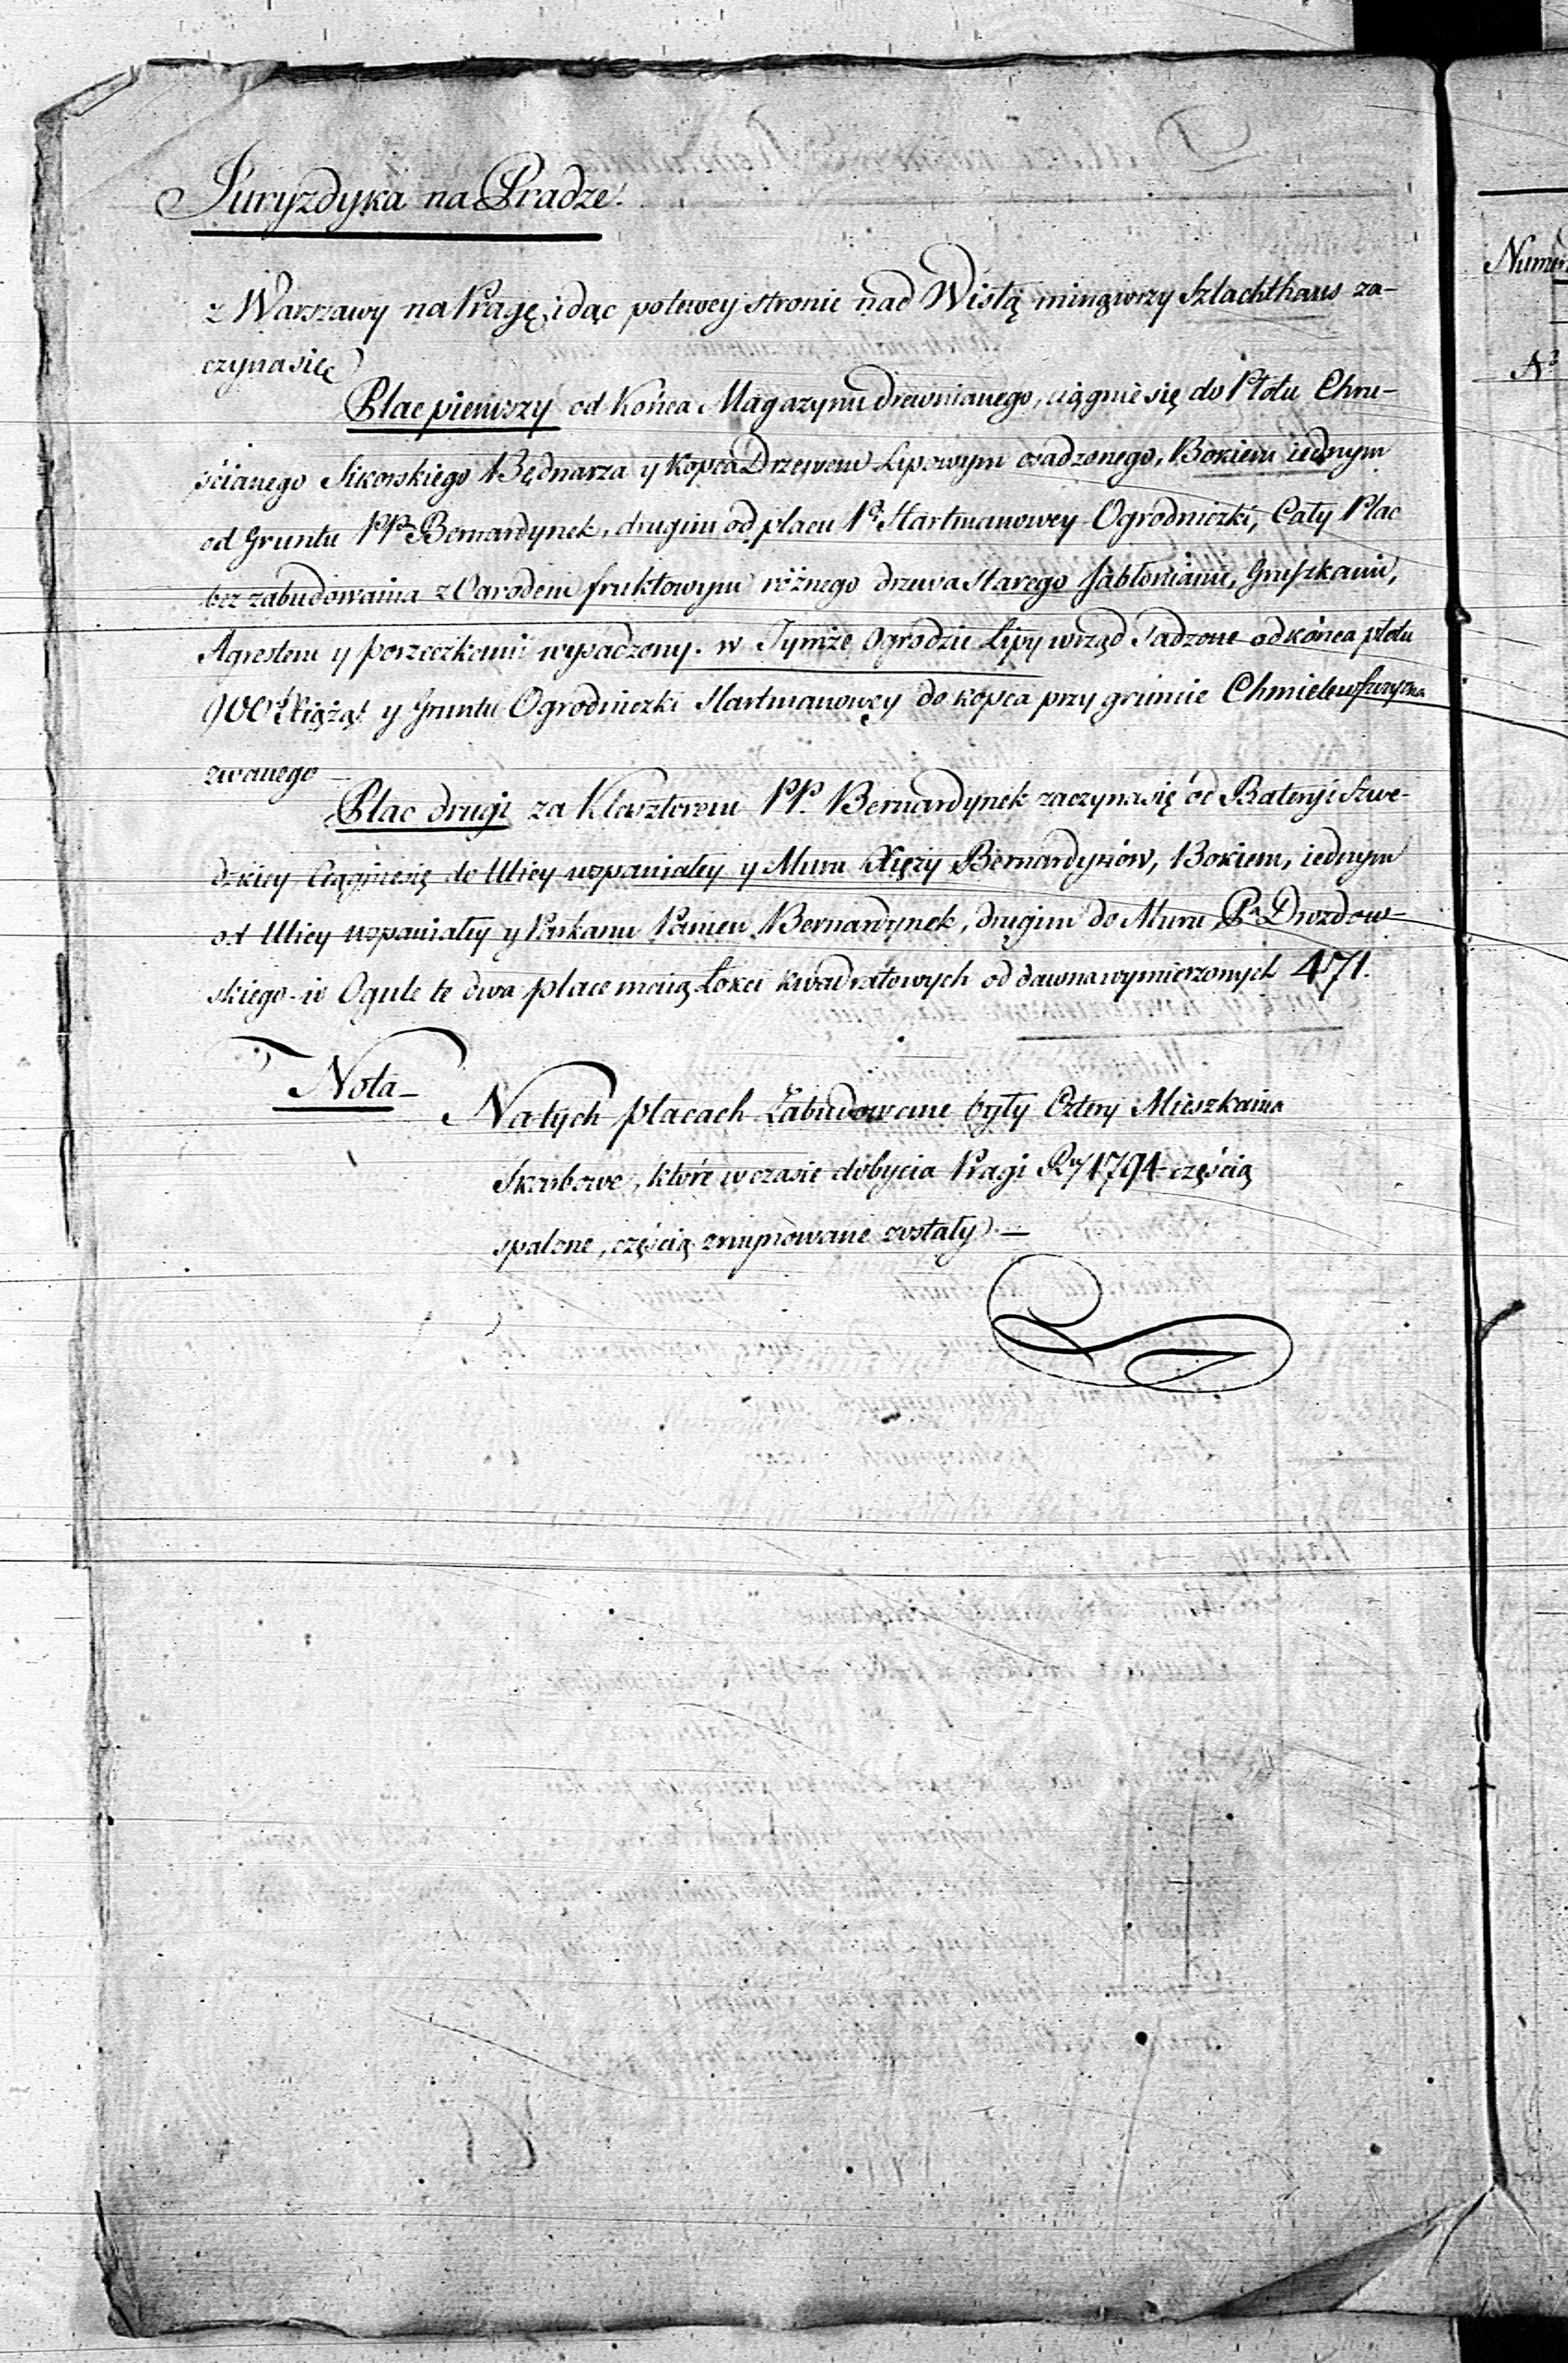 Juryzdyka na Pradze.
z Warszawy na Pragę idąc po lewey stronie nad Wisłą minąwszy Szlachthaus za-
czyna się
Plac pierwszy od Końca Magazynu drewnianego, ciągnie się do Płotu Chru-
ścianego Sikorskiego Będnarza y Kopca Drzewem Lipowym osadzonego, Bokiem iednym
od Gruntu PP. Bernardynek, drugim od placu P. Hartmanowey Ogrodniczki, Cały Plac
bez zabudowania z Ogrodem fruktowym różnego drzewa starego Jabłoniami, Gruszkami,
Agrestem y porzeczkami wysadzony. w Tymże Ogrodzie Lipy wrząd sadzone od końca płotu
y Gruntu Ogrodniczki Hartmanowey do kopca przy gruncie Chmielewszczyzna
zwanego —
Plac drugi za Klasztorem PP. Bernardynek zaczyna się od Bateryi Szwe-
dzkiey Ciągnie się do Ulicy wspaniałey y Muru Xięży Bernardynów, Bokiem, iednym
od Ulicy wspaniałey y Parkanu Panien Bernardynek, drugim do Muru Pa Drozdow-
skiego - w Ogule te dwa place maią Łokci kwadratowych od dawna wymierzonych 471.
Nota —
Na tych placach Zabudowane były Cztery Mieszkania
Skarbowe, które w czasie dobycia Pragi Ru 1794 częścią
spalone, częścią zruynowane zostały. —
Numer
No